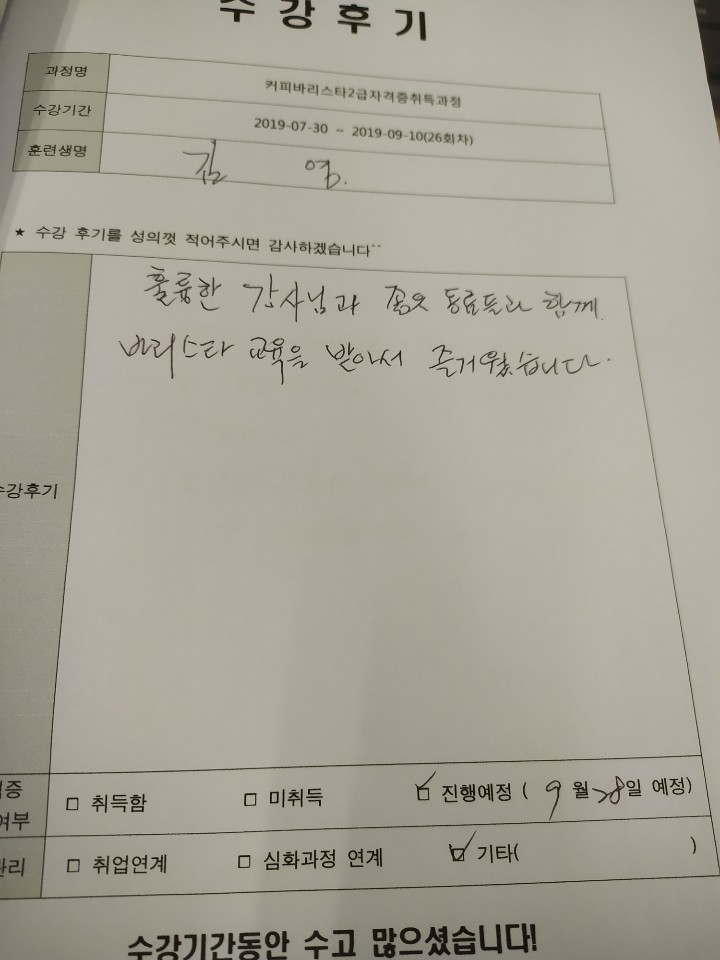 수강후기
과정명 커피바리스타2급자격증취득과정
수강기간 2019-07-30 ~ 2019-09-10(26회차)
훈련생명 김 영.
★ 수강 후기를 성의껏 적어주시면 감사하겠습니다~~
훌륭한 강사님과 좋은 동료들과 함께
바리스타 교육을 받아서 즐거웠습니다.
수강후기
증 □ 취득함 □ 미취득 ☑ 진행예정 ( 9 월 28일 예정)
여부
관리 □ 취업연계 □ 심화과정 연계 ☑ 기타( )
수강기간동안 수고 많으셨습니다!